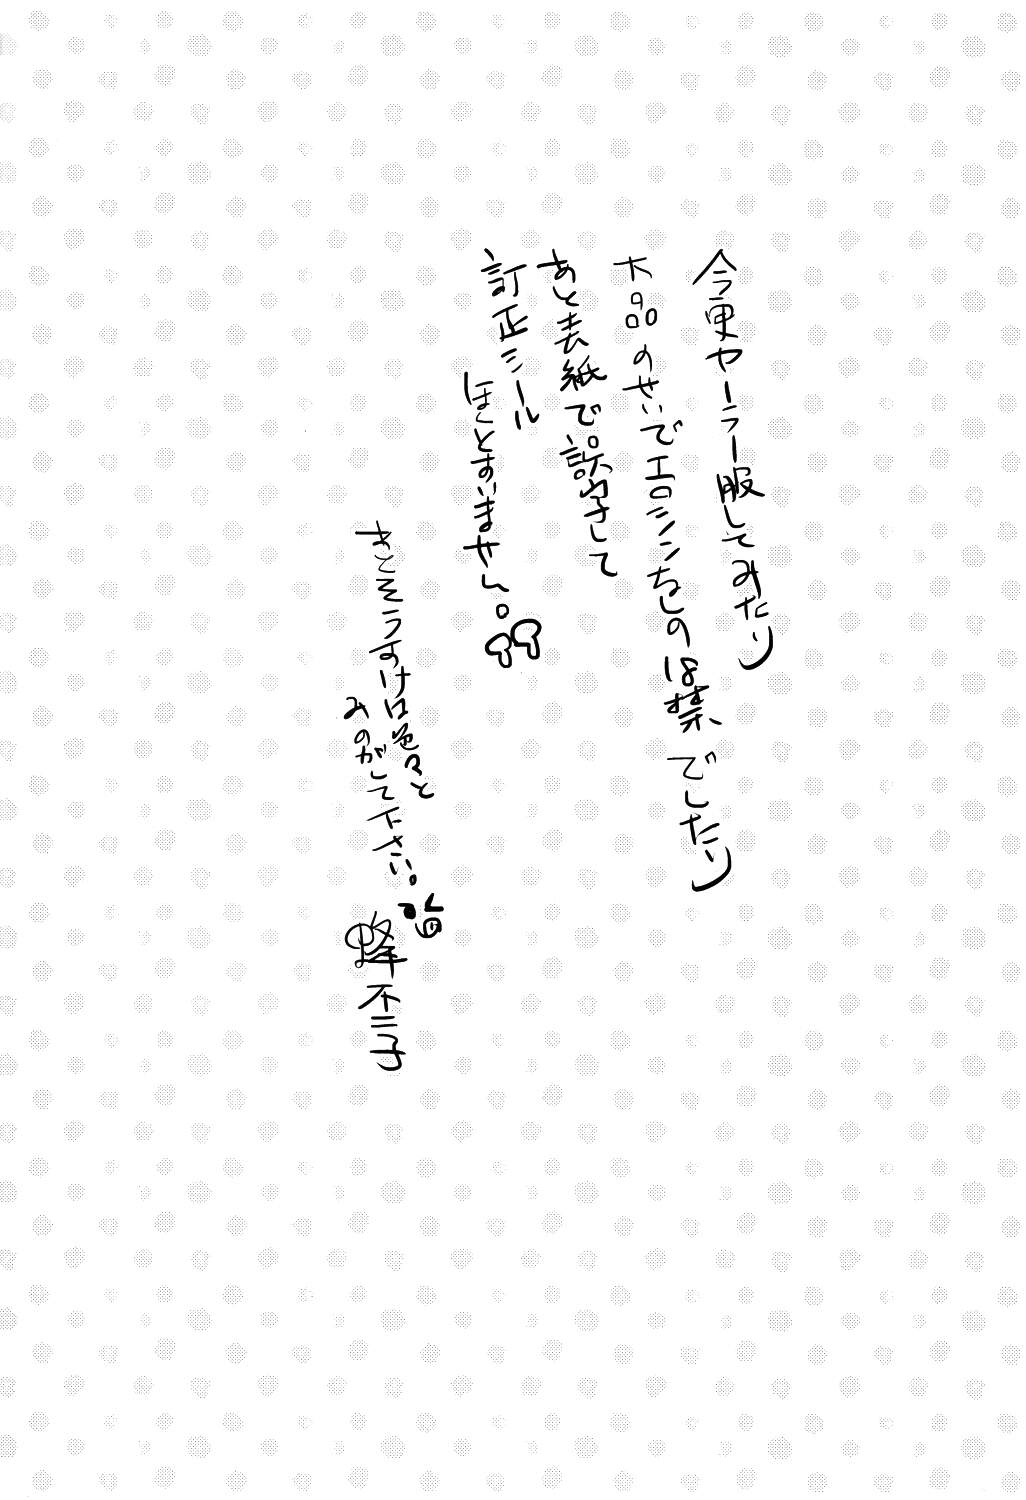 今更セーラー服してみたり
大品のせいでエロシンちしのは禁でしたり
あと表紙で誤字して
訂正シール
ほんとすいません。
あとそうすけは色々と
みのがして下さい。
蜂不二子